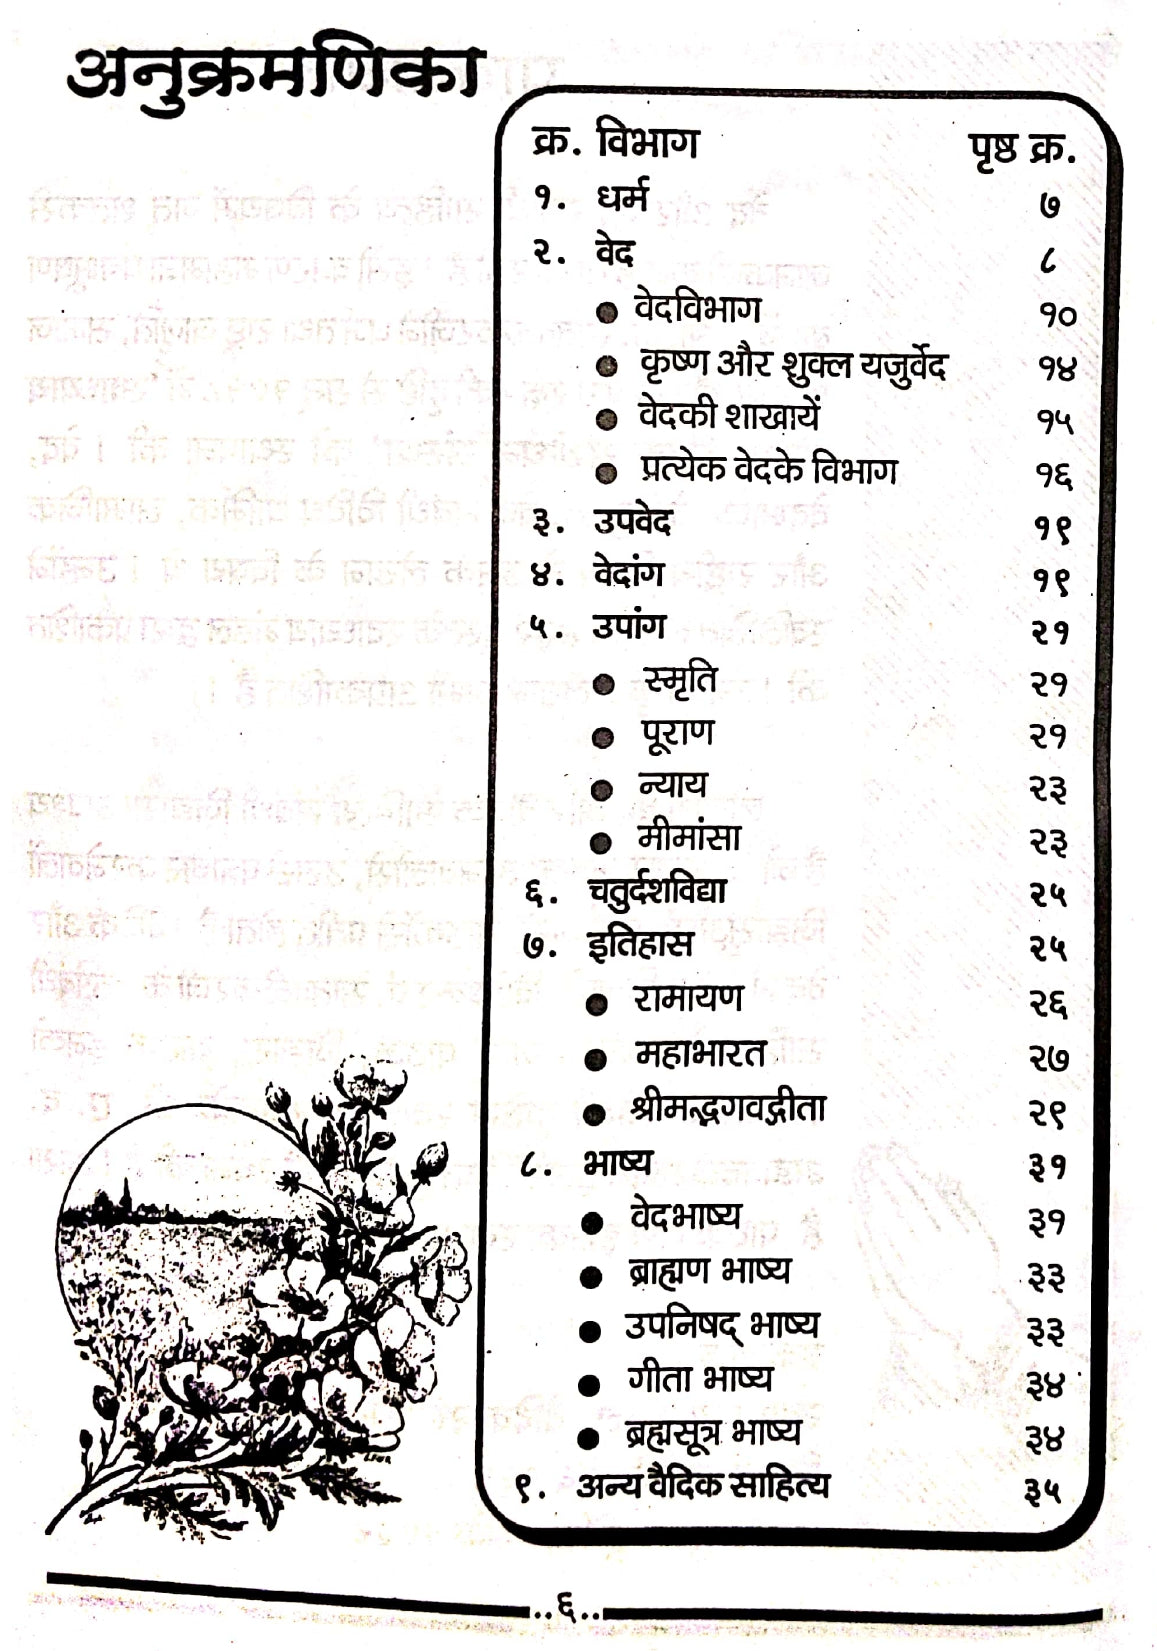 अनुक्रमणिका
क्र. विभाग पृष्ठ क्र.
१. धर्म ७
२. वेद ८
● वेदविभाग १०
● कृष्ण और शुक्ल यजुर्वेद १४
● वेदकी शाखायें १५
● प्रत्येक वेदके विभाग १६
३. उपवेद १९
४. वेदांग १९
५. उपांग २१
● स्मृति २१
● पूराण २१
● न्याय २३
● मीमांसा २३
६. चतुर्दशविद्या २५
७. इतिहास २५
● रामायण २६
● महाभारत २७
● श्रीमद्भगवद्गीता २९
८. भाष्य ३१
● वेदभाष्य ३१
● ब्राह्मण भाष्य ३३
● उपनिषद् भाष्य ३३
● गीता भाष्य ३४
● ब्रह्मसूत्र भाष्य ३४
९. अन्य वैदिक साहित्य ३५
..६..